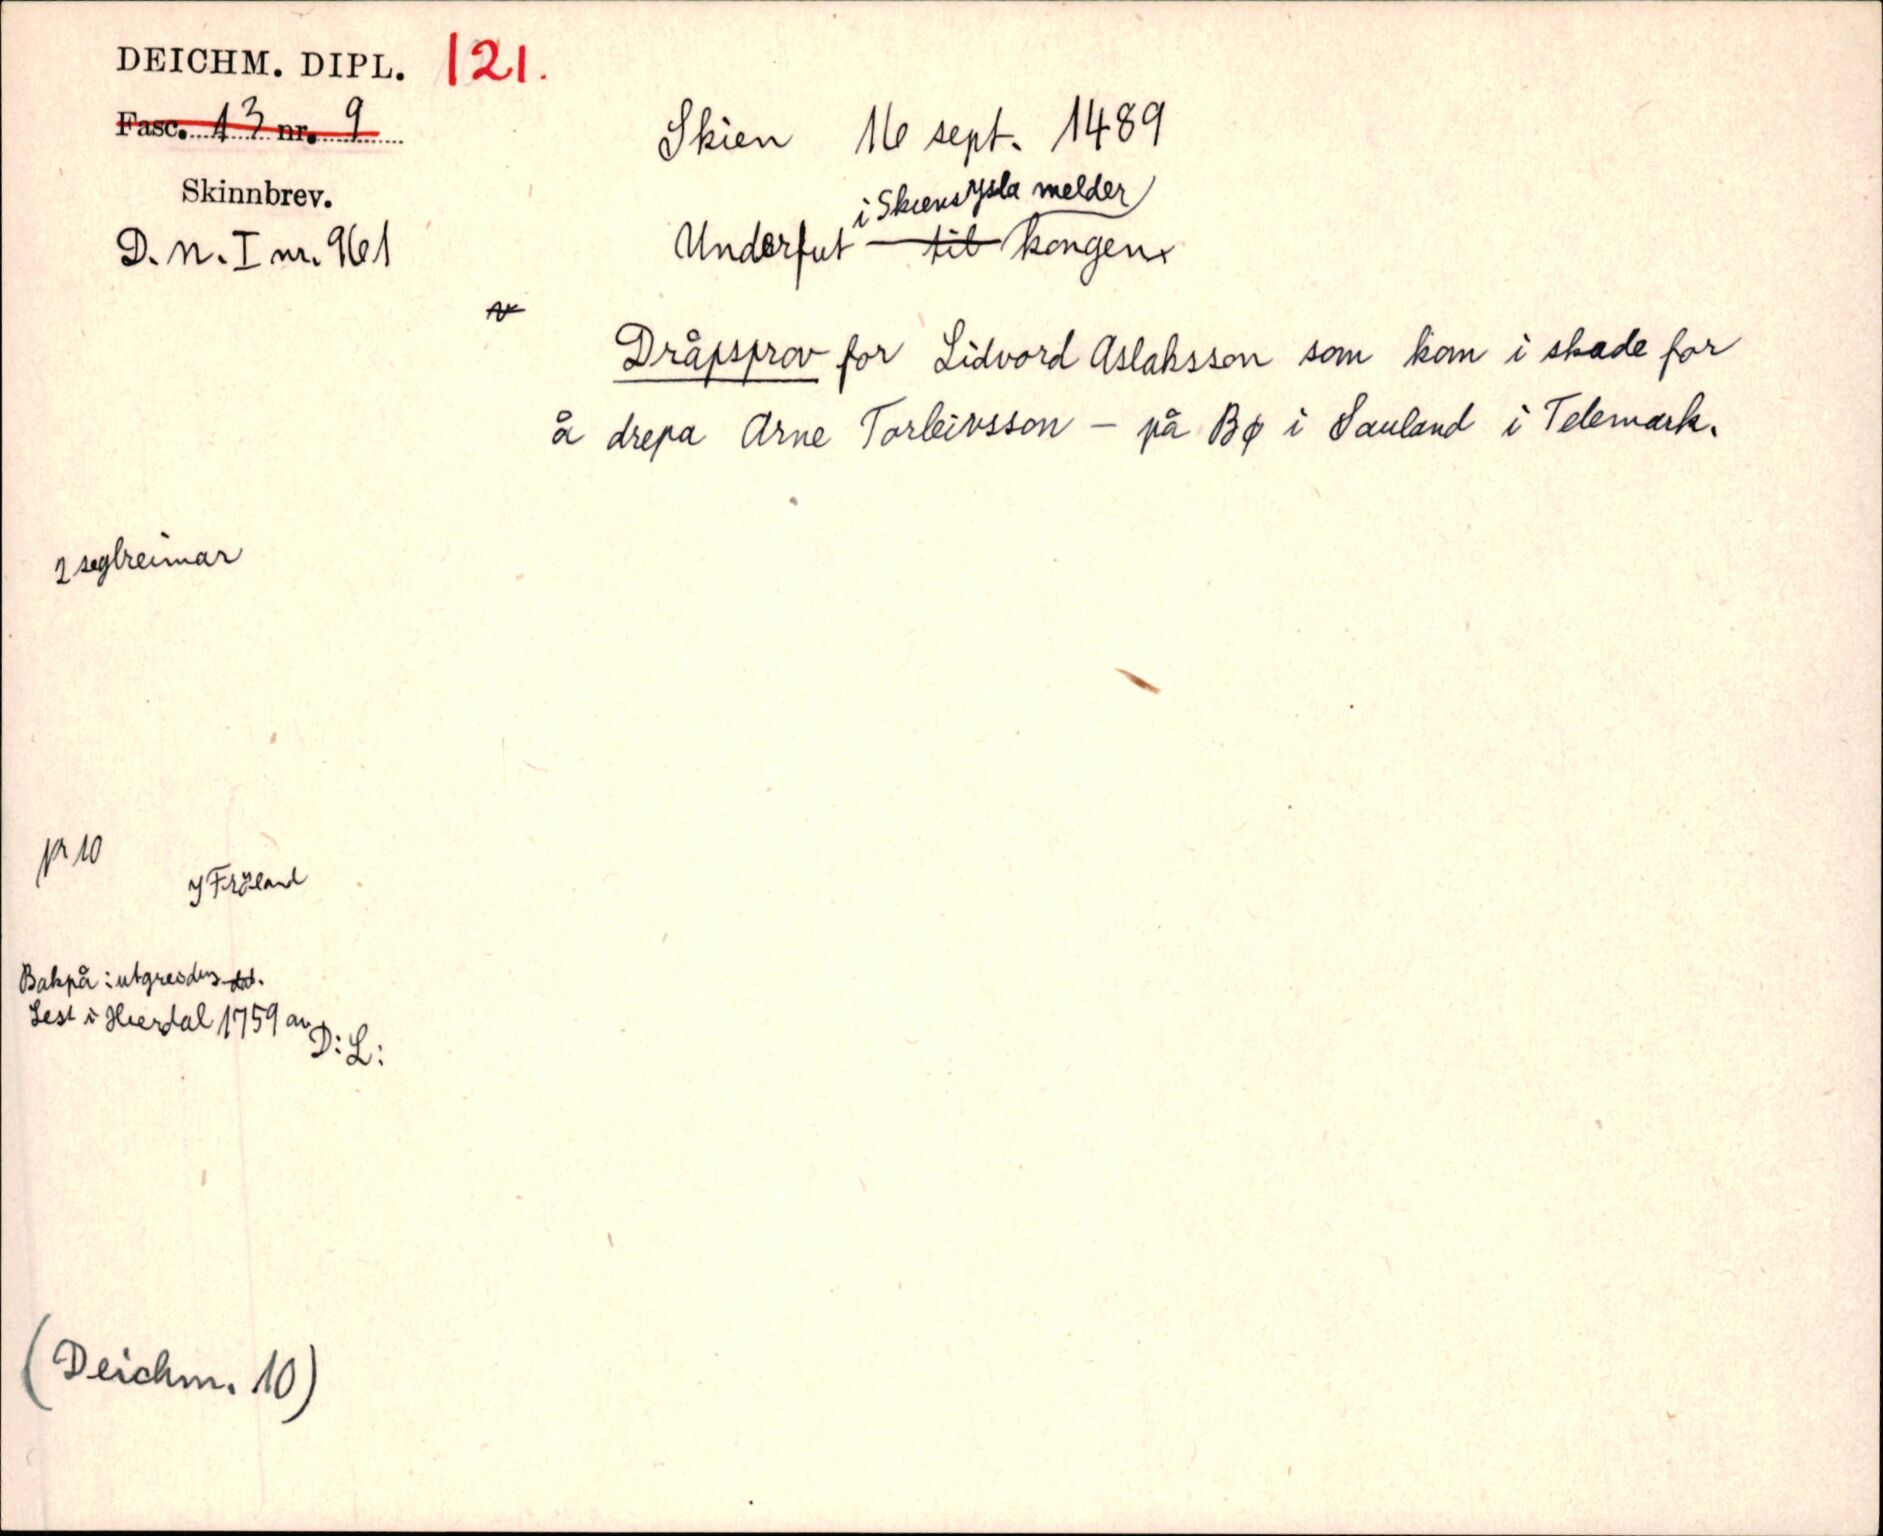 DEICHM. DIPL. 121.
Fasc. 13 nr. 9
Skinnbrev.
D.N. I nr. 961
Skien 16 sept. 1489
i Skiensysla melder
Underfut til kongen
Dråpsprov for Lidvord Aslaksson som kom i skade for
å drepa Arne Torleivsson – på Bø i Sauland i Telemark.
2 seglreimar
nr 10
Frøland
Bakpå: utgreidng
Lest i Hierdal 1759 av
D: L:
(Deichm. 10)